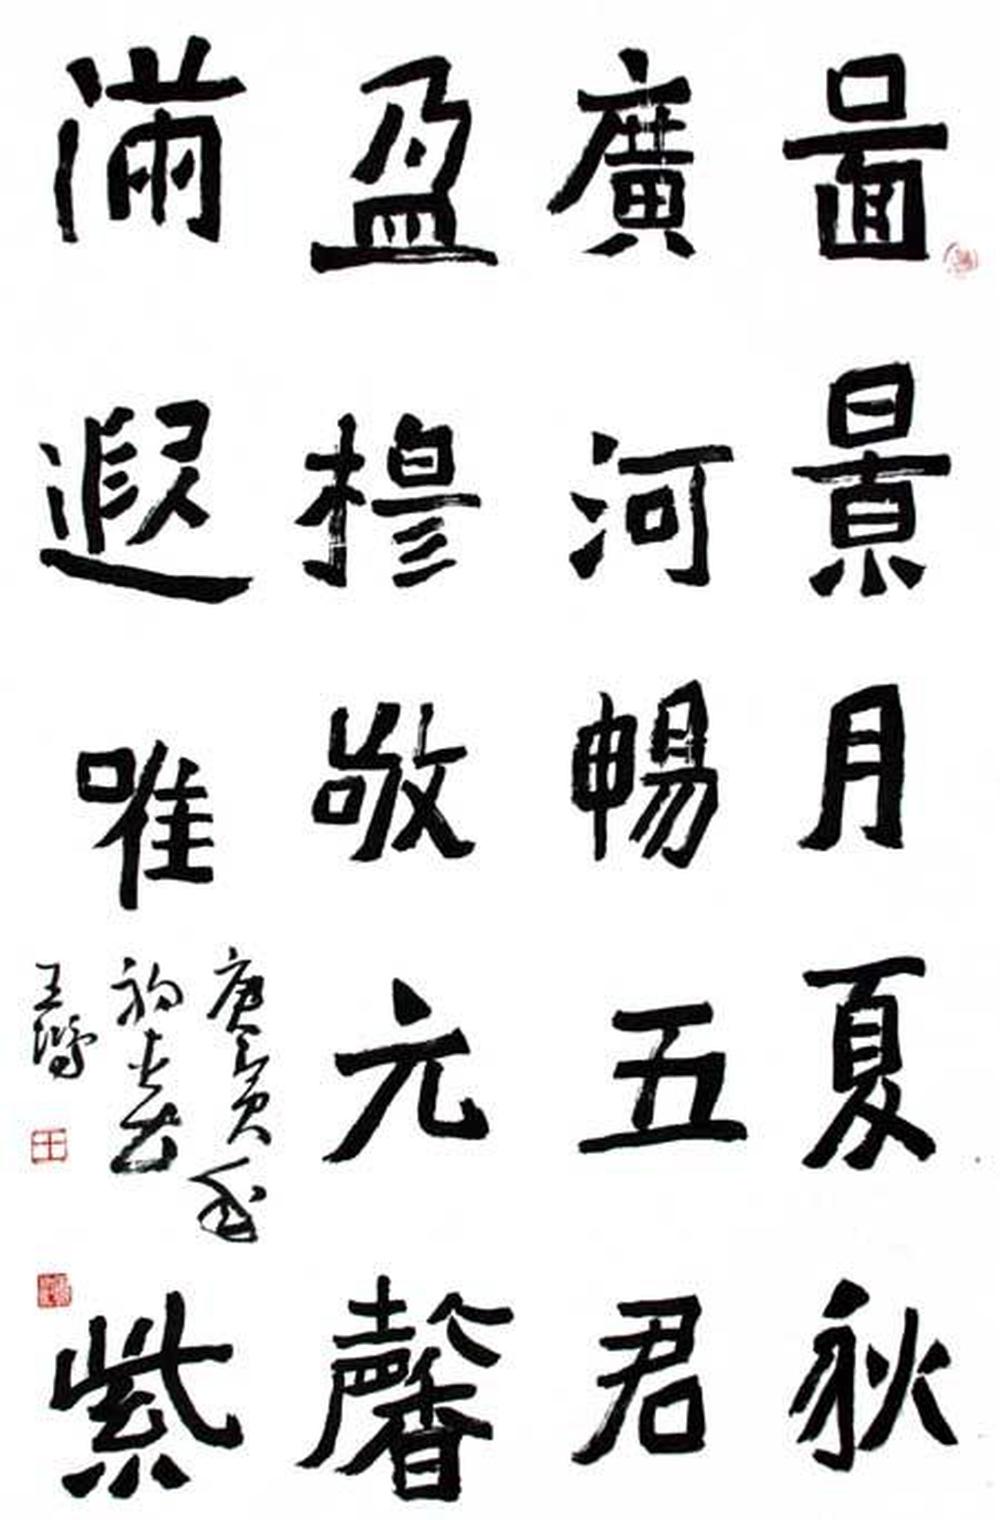 啚景月夏秋
廣河暢五君
盈穆敬元馨
滿遐唯紫
庚寅
王鏞
王